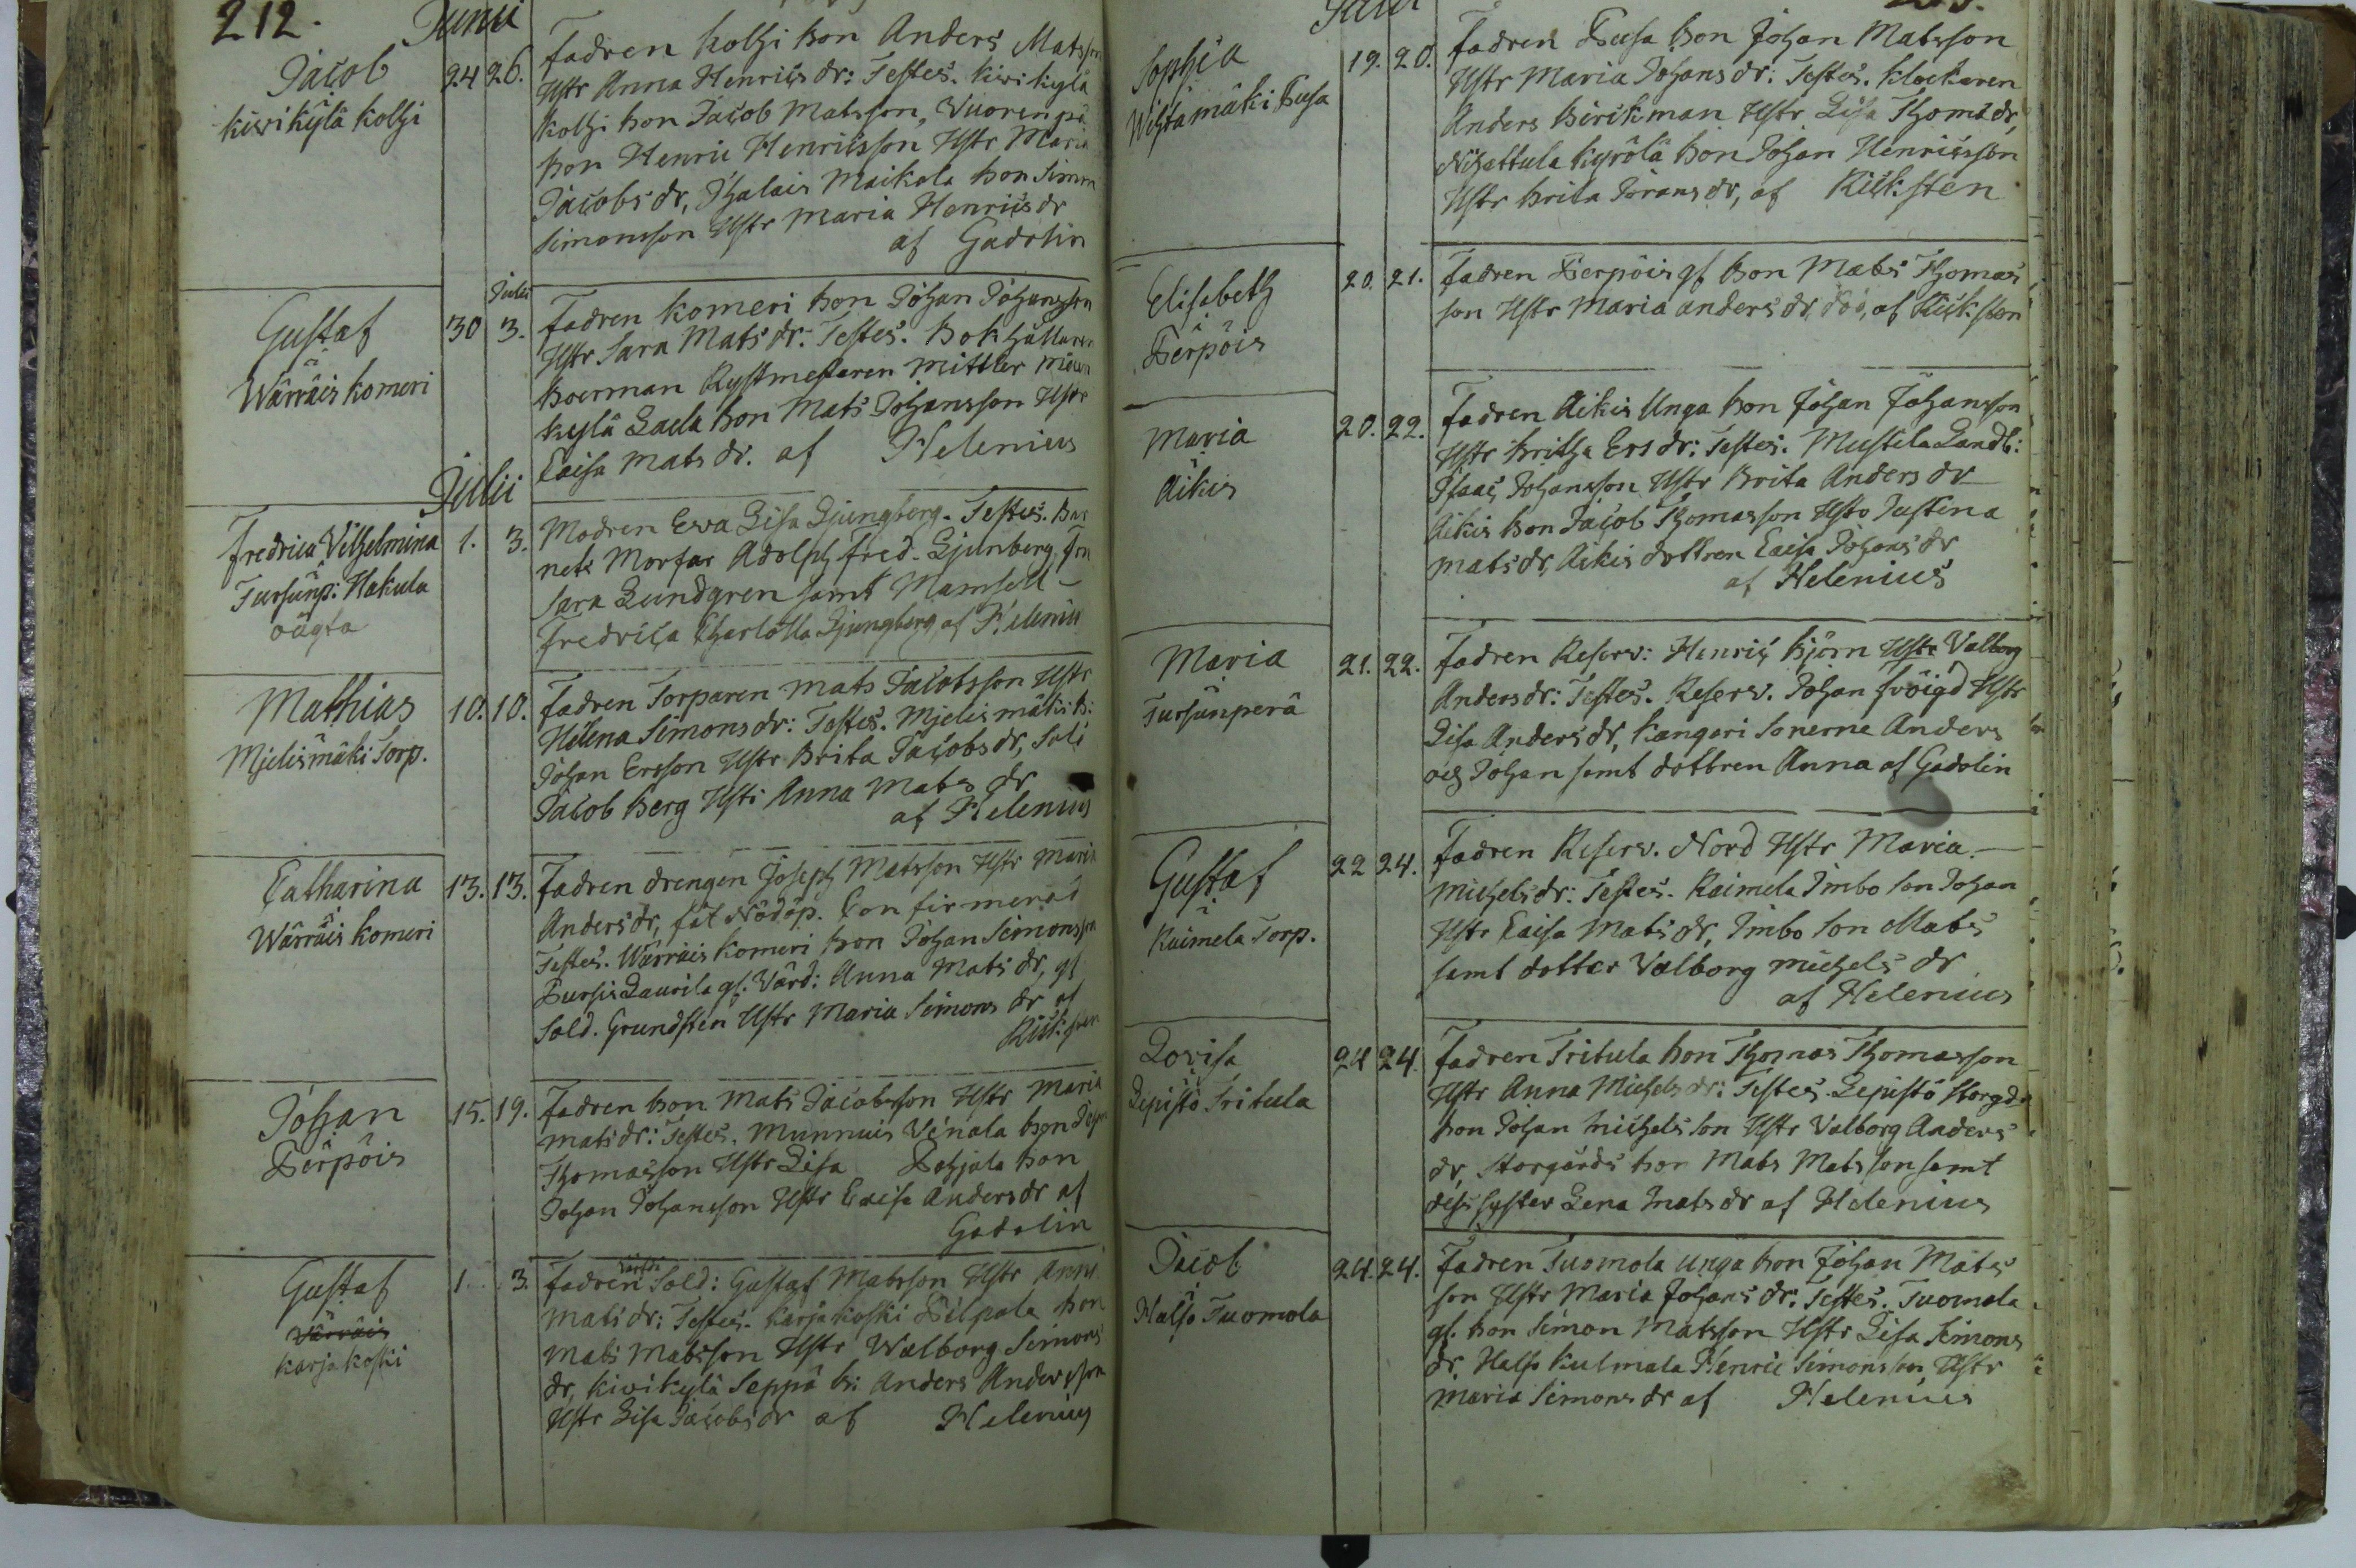 212.
Junii
Jacob
kiwikylä kolhi
24 26.
Fadren kolhi bon Anders Matsson
Hstr Anna Henrics dr: Testes. kiwi kylä
kolhi bon Jacob Matsson, Vuorenpä
bon Henric Henricsson Hstr Maria
Jacobs dr, Thalais Maikola bon Simon
Simonsson Hstr Maria Henrics dr
af Gadolin
Gustaf
Wärräis komeri
30
Julii
3.
Fadren komeri bon Johan Johansson
Hstr Sara Mats dr: Testes. Bokhållaren
Boerman Rystmestaren Mittler
kylä Laela bon Mats Johansson Hstr
Caisa Mats dr. af Helenius
Julii
Fredrica Vilhelmina
Tursunp: Hakula
oägta
1. 3.
Modren Ewa Lisa Ljungberg. Testes. Bar
nets Morfar Adolph Fred. Ljunberg,
Sara Lundgren samt Mamsell
Fredrica Charlotta Ljungberg af Helenius
Mathias
Mjelismäki Torp.
10. 10.
Fadren Torparen Mats Jacobsson Hstr
Helena Simons dr: Testes. Mjelismäki B:
Johan Ersson Hstr Brita Jacobs dr, Sold
Jacob Berg Hstr Anna Mats dr
af Helenius
Catharina
Wärräis komeri
13. 13.
Fadren drengen Joseph Matsson Hstr Maria
Anders dr, fåt Nödöp. Confirmerad
Testes. Wärräis komeri bon Johan Simonsson
Pursis Laurila gl. Värd: Anna Mats dr, gl
Sold. Grundsten Hstr Maria Simons dr af
Kiik:sten
Johan
Perpöis
15. 19.
Fadren bon Mats Jacobsson Hstr Maria
Mats dr: Testes. Munnuis Venala bon Johan
Thomasson Hstr Lisa Pohjala bon
Johan Johansson Hstr Caisa Anders dr af
Gadolin
Gustaf
Wärräis
karjakoski
1. 3.
Fadren Sold: Gustaf Matsson Hstr Anna
Mats dr: Testes. karjakoski Pelpala bon
Mats Matsson Hstr Walborg Simons
dr, kiwikylä Seppä B: Anders Andersson
Hstr Lisa Jacobs dr af Helenius
Sophia
Wihtamäki Pusa
19. 20.
Fadren Pusa bon Johan Matsson
Hstr Maria Johans dr: Testes. klockaren
Anders Birckman Hstr Lisa Thoms dr,
Nihattula kyrölä bon Johan Henricsson
Hstr Brita Jörans dr, af Kiik:sten
Elisabeth
Perpöis
20. 21.
Fadren Perpöis gl bon Mats Thomas
son Hstr Maria anders dr, död, af Kiik:sten
Maria
Aikis
20. 22.
Fadren Aikis Unga bon Johan Johansson
Hstr Britha Ers dr: Testes. Mustila Landb:
Isaac Johansson Hstr Brita Anders dr
Aikis bon Jacob Thomasson Hstr Justina
Mats dr, Aikis dottren Caisa Johans dr
af Helenius
Maria
Tursunperä
21. 22.
Fadren Reserv: Henric Björn Hstr Valborg
Anders dr: Testes. Reserv. Johan Fröigd Hstr
Lisa Anders dr, Kangari Sonerne Anders
och Johan samt dottren Anna af Gadolin
Gustaf
Kaimela Torp.
22 24.
Fadren Reserv. Nord Hstr Maria
Michels dr: Testes. Kaimela Jmbo son Johan
Hstr Caisa Mats dr, Jmbo son Mats
samt dotter Valborg Michels dr
af Helenius
Lovisa
Lepistö Tritula
24 24
Fadren Tritula bon Thomas Thomasson
Hstr Anna Michels dr: Testes Lepistö Storgd
bon Johan Michelsson Hstr Valborg Anders
dr, Storgårds bon Mats Matsson samt
des syster Lena Mats dr af Helenius
Jacob
Halso Tuomola
24. 24.
Fadren Tuomola unga bon Johan Mats
son Hstr Maria Johans dr: Testes. Tuomola
gl. bon Simon Matsson Hstr Lisa Simons
dr, Halso Kulmala Henric Simonsson Hstr
Maria Simons dr af Helenius